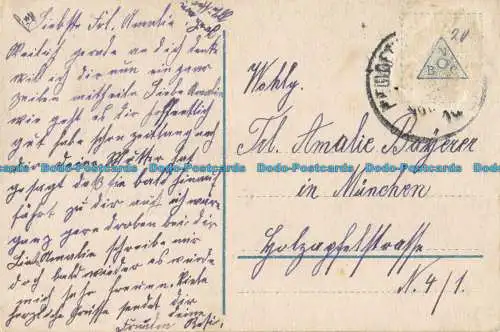 Liebste Frl. Amalie
Weilich gerade an dich denke
will ich dir nun ein paar
Zeilen mitteilen Liebe Amalie
wie geht es dir hoffentlich
gut habe schon
dir deine Mutter hat
gesagt daß sie bald hinauf
fährt zu dir auf ich wäre
ganz gern droben bei dir
Lieb. Amalie schreibe mir
doch bald wieder es würde
mich sehr freuen. Viele
herzliche Grüsse sendet dir
deine
Freundin Resi.
Wohlg.
Frl. Amalie Bayerer
in München
Holzapfelstrasse
N. 4/1.
24
V
B O C
Dodo-Postcards Dodo-Postcards Dodo-Postcards Dodo-Postcards